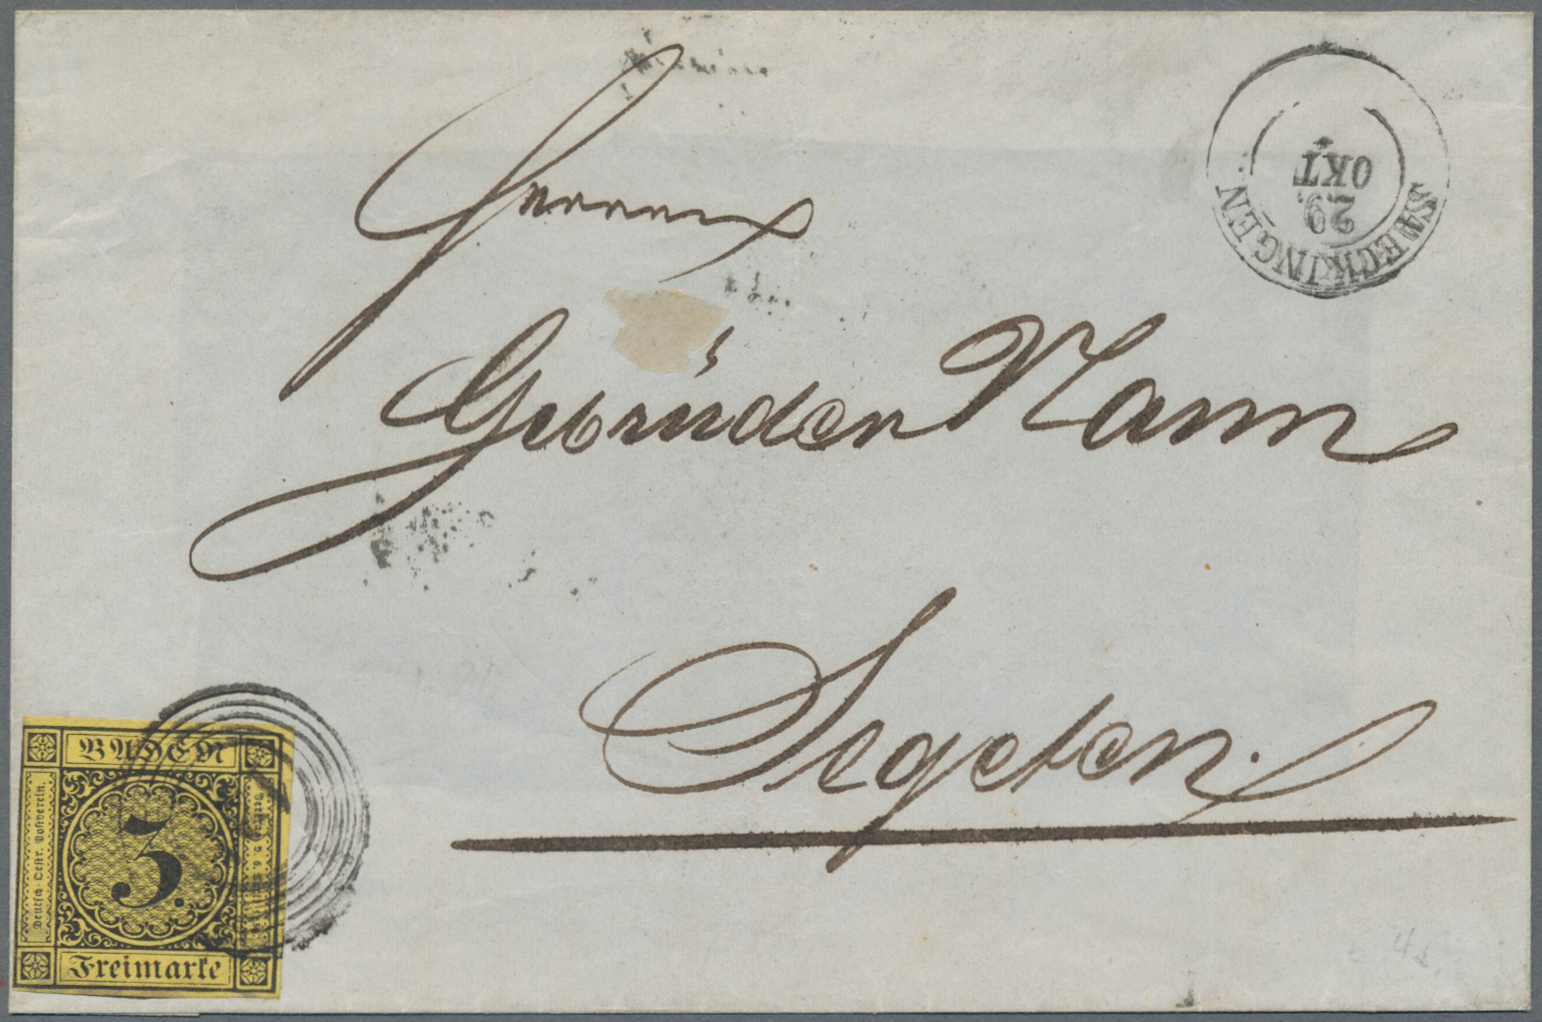 Herren
Gebrüder Mann
Segeten.
SAECKINGEN
29
OKT
BADEN
Deutsch-Oestr. Postverein.
3.
Freimarke